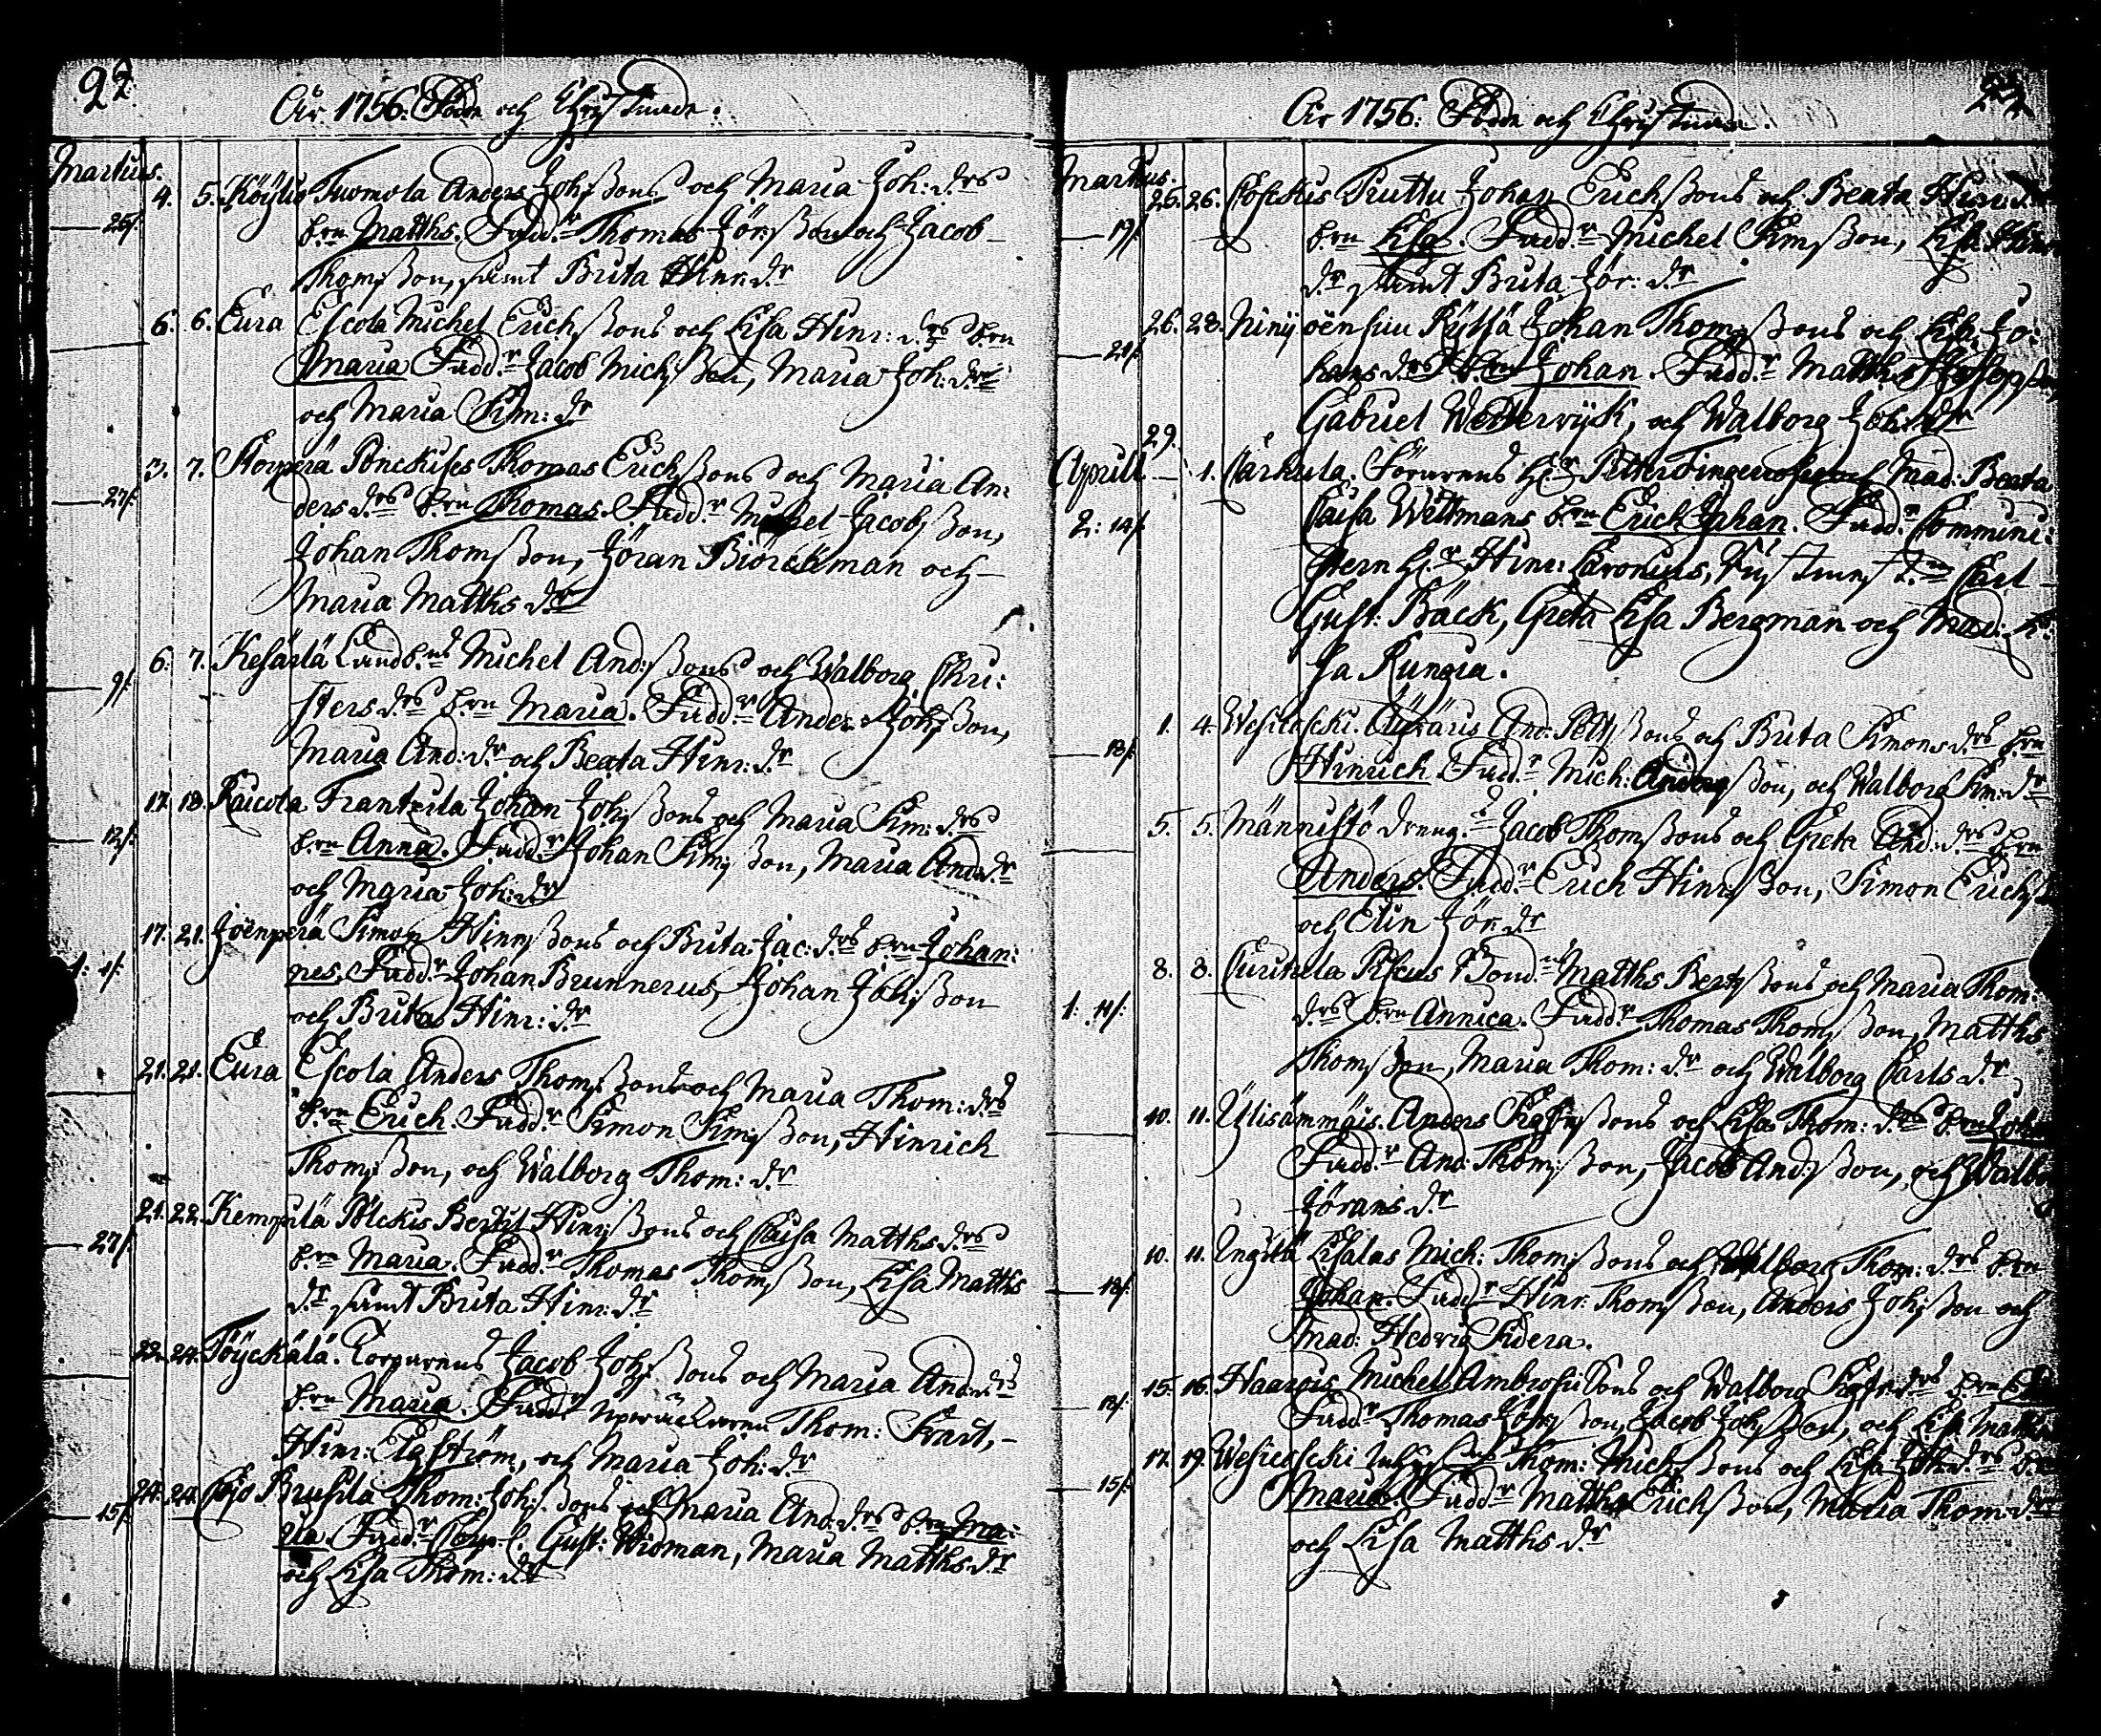 22.
År 1756. Födde och Christnade.
Martius.
4. 5. Köyliö Tuomola Anders Joh:ßons och Maria Joh: d:rs
26/. b:rn Matths. Fadd:r Thomas Jör:ßon och Jacob
Thom:ßon, samt Brita Hinr: d:r
6. 6. Eura Escola Michel Erich:ßons och Lisa Hinr: d:rs b:rn
Maria Fadd:r Jacob Mich:ßon, Maria Joh: d:r
och Maria Sim: d:r
3. 7. Thomas Erich:ßons och Maria An-
27/. ders d:rs b:rn Thomas. Fadd:r Michel Jacob:ßon,
Johan Thom:ßon, Jöran Biörckman och
Maria Matths d:r
6. 7. Kesärlä Landb:ns Michel And:ßons och Walborg Chri-
9/. sters d:rs b:rn Maria. Fadd:r Anders Joh:ßon,
Maria And: d:r och Beata Hinr: d:r
17. 18. Raicola Frantzila Johan Joh:ßons och Maria Sim: d:rs
12/. b:rn Anna. Fadd:r Johan Sim:ßon, Maria And: d:r
och Maria Joh: d:r
17. 21. Jöenperä Simon Hinr:ßons och Brita Jac: d:rs b:rn Johan-
1: 1/: nes. Fadd:r Johan Brunnerus, Johan Joh:ßon
och Brita Hinr: d:r
21. 21. Eura Escola Anders Thom:ßons och Maria Thom: d:rs
b:rn Erich. Fadd:r Simon Sim:ßon, Hinrich
Thom:ßon, och Walborg Thom: d:r
21. 22. Kempilä Pölckis Bertil Hinr:ßons och Caisa Matths d:rs
27/. b:rn Maria. Fadd:r Thomas Thom:ßon, Lisa Matths
d:r samt Brita Hinr: d:r
22. 24. Töyckälä. Torparens Jacob Joh:ßons och Maria And: d:rs
b:rn Maria. Fadd:r Thom: Frart,
Hinr: Elgström, och Maria Joh: d:r
24. 24. Cojo Brusila Thom: Joh:ßons och Maria And: d:rs b:rn Ma-
15/. ria. Fadd:r Corp:l Gust: Widman, Maria Matths d:r
och Lisa Thom: d:r
År 1756: Födde och Christnade.
Martius.
26. 26. Pruttu Johan Erich:ßons och Beata Hinr: d:rs
19/. b:rn Lisa. Fadd:r Michel Sim:ßon, Lisa Hinr:
d:r samt Brita Jör: d:r
26. 28. Niniöensuu Pyltsä Johan Thom:ßons och Lisa Jo-
21/. hans d:rs b:rn Johan. Fadd:r Matths
Gabriel Wetterwijk, och Walborg Joh: d:r
29.
April 1. Cärkula. Förarens H:r Petter Fingerroos och Mad: Beata
2: 14/. Caisa Wittmans b:rn Erich Johan. Fadd:r Commini-
stern H:r Hinr: Caronius, Carl
Gust: Bäck, Greta Lisa Bergman och Mad:
sa Rungia.
1. 4. Wesicoscki. Äyräris And: Pett:ßons och Brita Simons d:rs b:rn
18/. Hinrich. Fadd:r Mich: Anders:ßon, och Walborg Sim: d:r
5. 5. Männistö dreng:ns Jacob Thom:ßons och Greta And: d:rs b:rn
Anders. Fadd:r Erich Hinr:ßon, Simon Erich:ß
och Elin Jör: d:r
8. 8. Curikala Piscus Bond:ns Matths Bert:ßons och Maria Thom:
1: 11/: d:rs b:rn Annica. Fadd:r Thomas Thom:ßon, Matths
Thom:ßon, Maria Thom: d:r och Walborg Carls d:r
10. 11. Ylisämmäis. Anders Sigfr:ßons och Lisa Thom: d:rs b:rn Joh
Fadd:r And: Thom:ßon, Jacob And:ßon, och Walbo
Jörans d:r
10. 11. Ungilä Lisalas Mich: Thom:ßons och Walborg Thom: d:rs b:rn
18/. Johan. Fadd:r Hinr: Thom:ßon, Anders Joh:ßon och
Mad: Hedvig Sidera.
15. 16. Haarois Michel Ambrosii Sons och Walborg Sigfr: d:rs b:rn
18/. Fadd:r Thomas Joh:ßon, Jacob Joh:ßon, och Lisa Matths
17. 19. Wesicoscki Thom: Mich:ßons och Lisa Joh: d:rs b:rn
15/. Maria. Fadd:r Matths Erich:ßon, Maria Thom: d:r
och Lisa Matths d:r